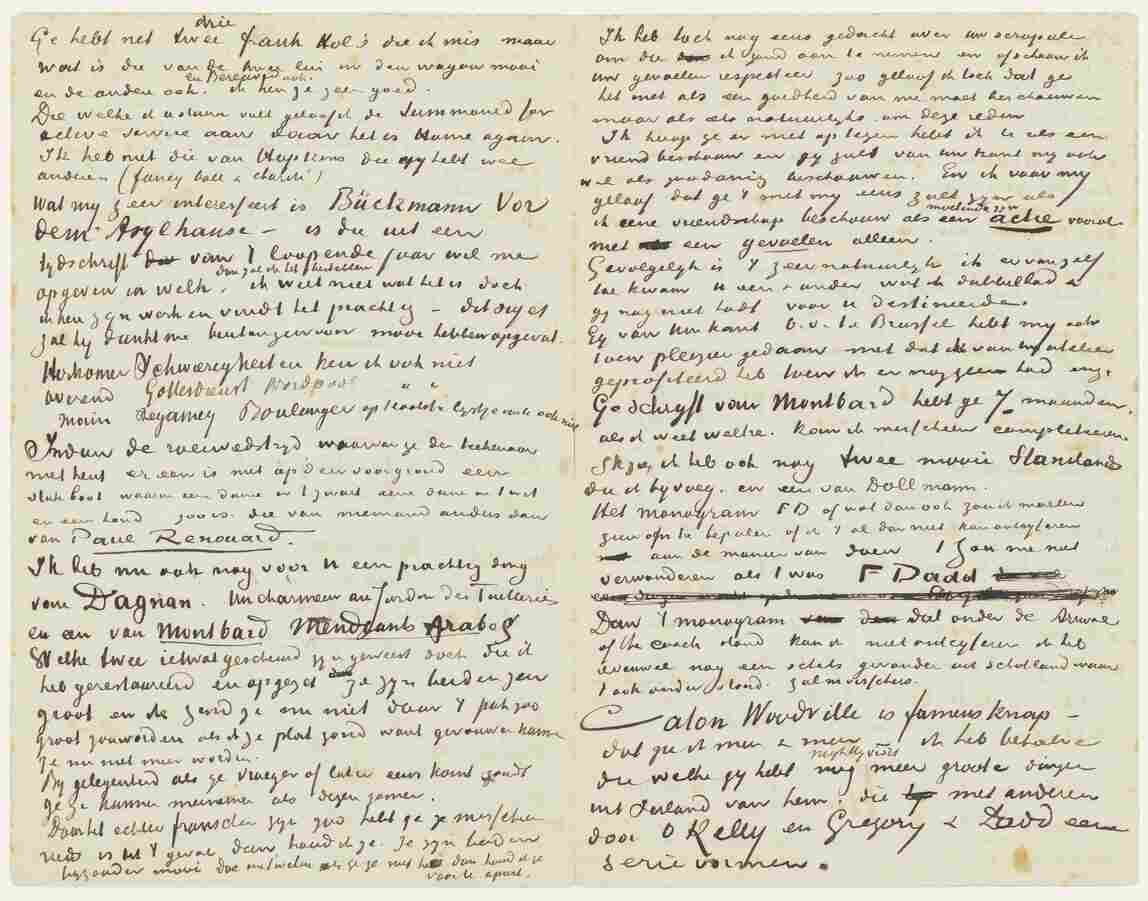 drie
Ge hebt net twee frank Hol's die ik mis maar
wat is die van de twee lui in den wagon mooi
en Bereaved ook.
en de andere ook. ik ken ze zeer goed.
Die welke ik u sturen zult geloof ik de Summoned for
active service aan daar het is Home again.
Ik heb niet die van Hopkins die gy hebt wel
andere (fancy ball & charité)
Wat my zeer interesseert is Bückmann Vor
dem Asylhause – is die uit een
tydschrift van 't loopende jaar wil me
dan zal ik het bestellen
opgeven in welk, ik weet niet wat het is doch
ik ken zyn werk en vindt het prachtig – dit sujet
zal hy dunkt me buitengewoon mooi hebben opgevat.
Herkomer Schwierigkeiten ken ik ook niet
Overend Gottesdienst Nordpool " "
Morin Regamey Boulanger op Hoofdst. lystje ook niet
Indien de roeiwedstryd waarvan ge de teekenaar
niet kent er een is met op den voorgrond een
vlak boot waarin een dame in 't zwart eene dame in 't wit
en een hond zoo is die van niemand anders dan
van Paul Renouard.
Ik heb nu ook nog voor u een prachtig ding
van Dagnan. Un charmeur au Jardin des Tuileries
en een van Montbard Mendiants Arabes
Welke twee ietwat gescheurd zyn geweest doch die ik
heb gerestaureerd en opgezet Ze zyn beiden zeer
groot en ik zend ze nu niet daar 't pak zoo
groot zou worden als ik ze plat zond want gevouwen kunnen
ze nu niet meer worden.
By gelegenheid als ge vroeger of later eens komt zoudt
ge ze kunnen meenemen als dezen zomer.
Daar het echter franschen zyn zoo hebt ge ze misschien
reeds is dit 't geval dan houd ik ze. Ze zyn beiden
byzonder mooi doe me weten als ge ze niet hebt dan houd ik ze
voor u apart.
Ik heb toch nog eens gedacht over uw scrupule
om die ik zond aan te nemen en ofschoon ik
uw gevoelen respecteer zoo geloof ik toch dat ge
het niet als een goedheid van me moet beschouwen
maar als iets natuurlyks om deze reden
Ik hoop ge er niet op tegen hebt ik u als een
vriend beschouw en gy zult van uw kant my ook
wel als zoodanig beschouwen. En ik voor my
geloof dat ge 't met my eens zult zyn als
moetende zyn
ik eene vriendschap beschouw als een actie vooral
niet een gevoelen alleen.
Gevolgelyk is 't zeer natuurlyk ik er van zelf
toe kwam u een & ander wat ik dubbel had &
gy nog niet hadt voor u destineerde.
Gy van uw kant b.v. te Brussel hebt my ook
toen plezier gedaan met dat ik van uw atelier
geprofiteerd heb toen ik er nog geen had enz.
Ge schryft van Montbard hebt ge 7 maanden.
als ik weet welke. kan ik misschien completeeren
Ik zag ik heb ook nog twee mooie Stanilands
die ik byvoeg. en een van Dollmann.
Het monogram FD of wat dan ook zou ik moeten
zien om te bepalen of ik 't al dan niet kan ontcyferen
aan de manier van doen 't zou me niet
verwonderen als 't was F Dadd
Dan 't monogram dat onder de Arrival
of the coach stond kan ik niet ontcyferen ik heb
evenwel nog een schets gevonden uit Schotland waar
't ook onder stond. zal misschien.
Caton Woodville is fameus knap –
dat zie ik meer & meer ik heb behalve
nightly rides
die welke gy hebt nog meer groote dingen
uit Ierland van hem. die met anderen
door O Kelly en Gregory & Dadd eene
serie vormen.